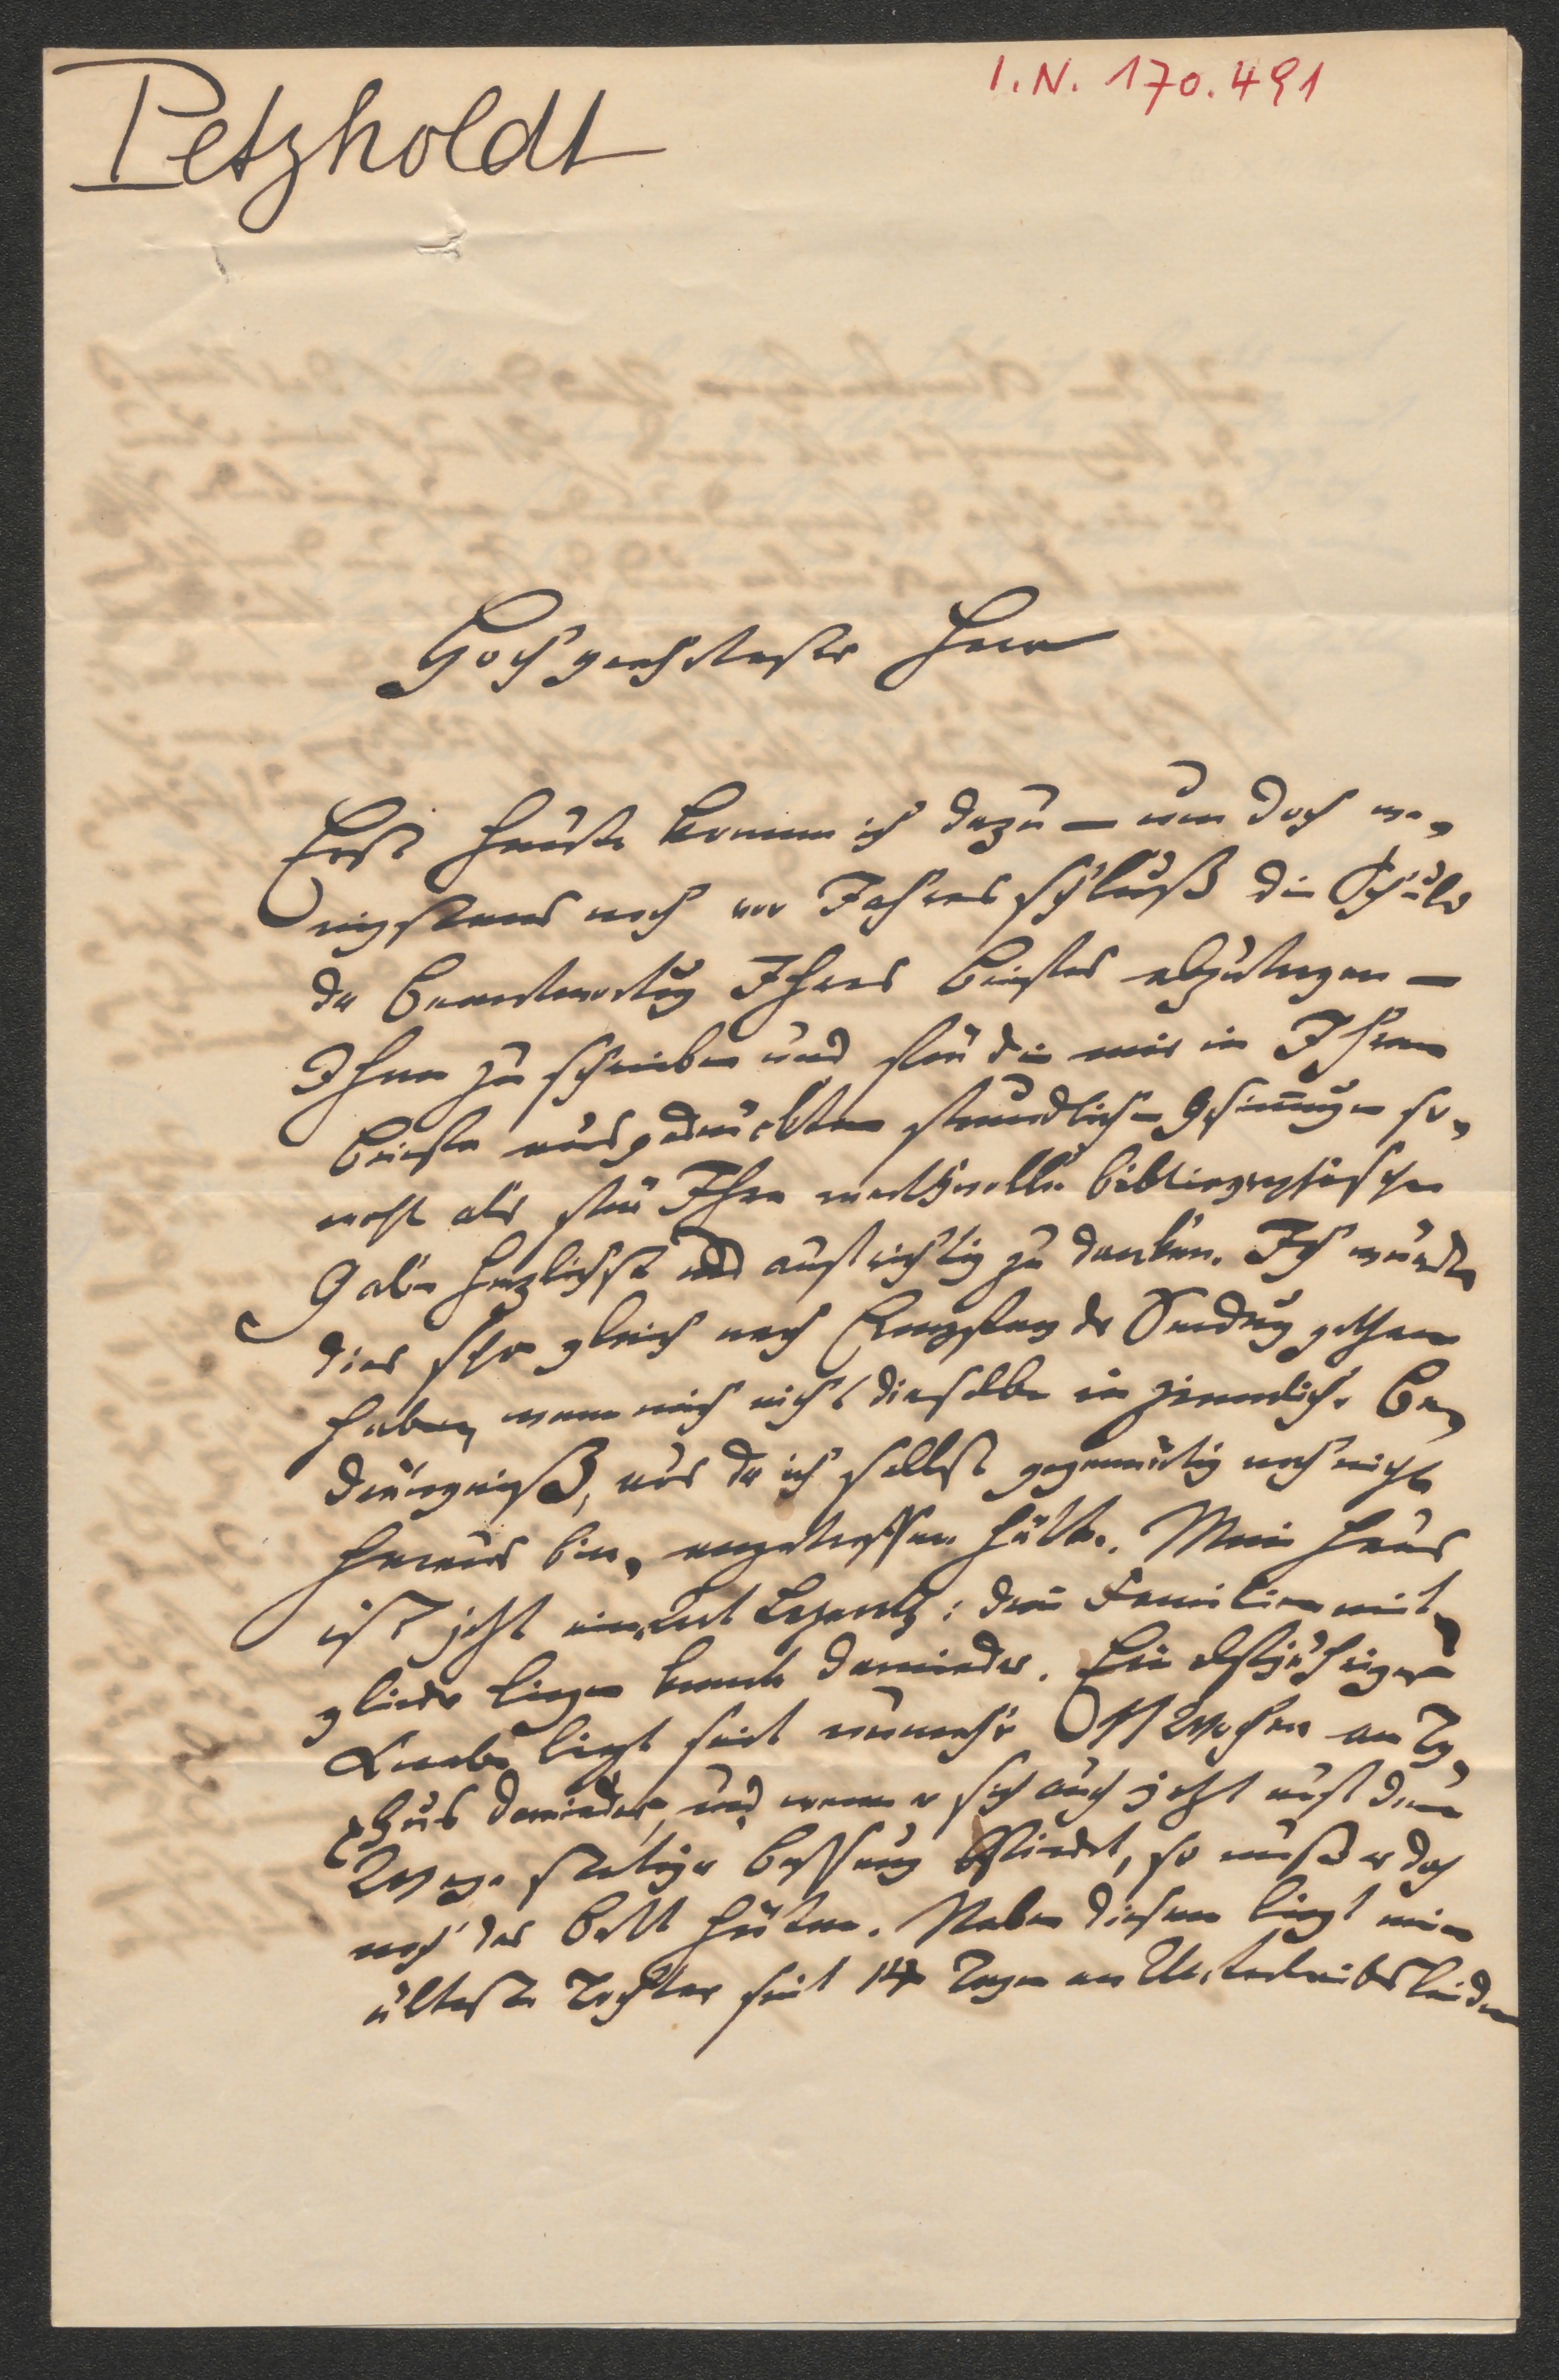 Petzholdt
I.N. 170.491
Hochgeehrtester Herr
Erst heute komme ich dazu — um doch we-
nigstens noch vor Jahresschluß die Schuld
der Beantwortung Ihres Briefes abzutragen —
Ihnen zu schreiben und für die mir in Ihrem
Briefe ausgedrückten freundlichen Gesinnungen so-
wohl als für Ihre werthvolle bibliographische
Gabe herzlichst und aufrichtig zu danken. Ich würde
dies schon gleich nach Empfang der Sendung gethan
haben, wenn mich nicht dieselbe in ziemlicher Be-
drängniß, aus der ich selbst gegenwärtig noch nicht
heraus bin, angetroffen hätte. Mein Haus
ist jetzt eine Art Lazareth: drei Familienmit-
glieder liegen krank darnieder. Ein elfjähriger
Knabe liegt seit nunmehr 11 Wochen am Ty-
phus darnieder, und wenn er sich auch jetzt auf dem
Wege stetiger Besserung befindet, so muß er doch
noch das Bett hüten. Neben diesem liegt meine
älteste Tochter seit 14 Tagen an Unterleibsleiden